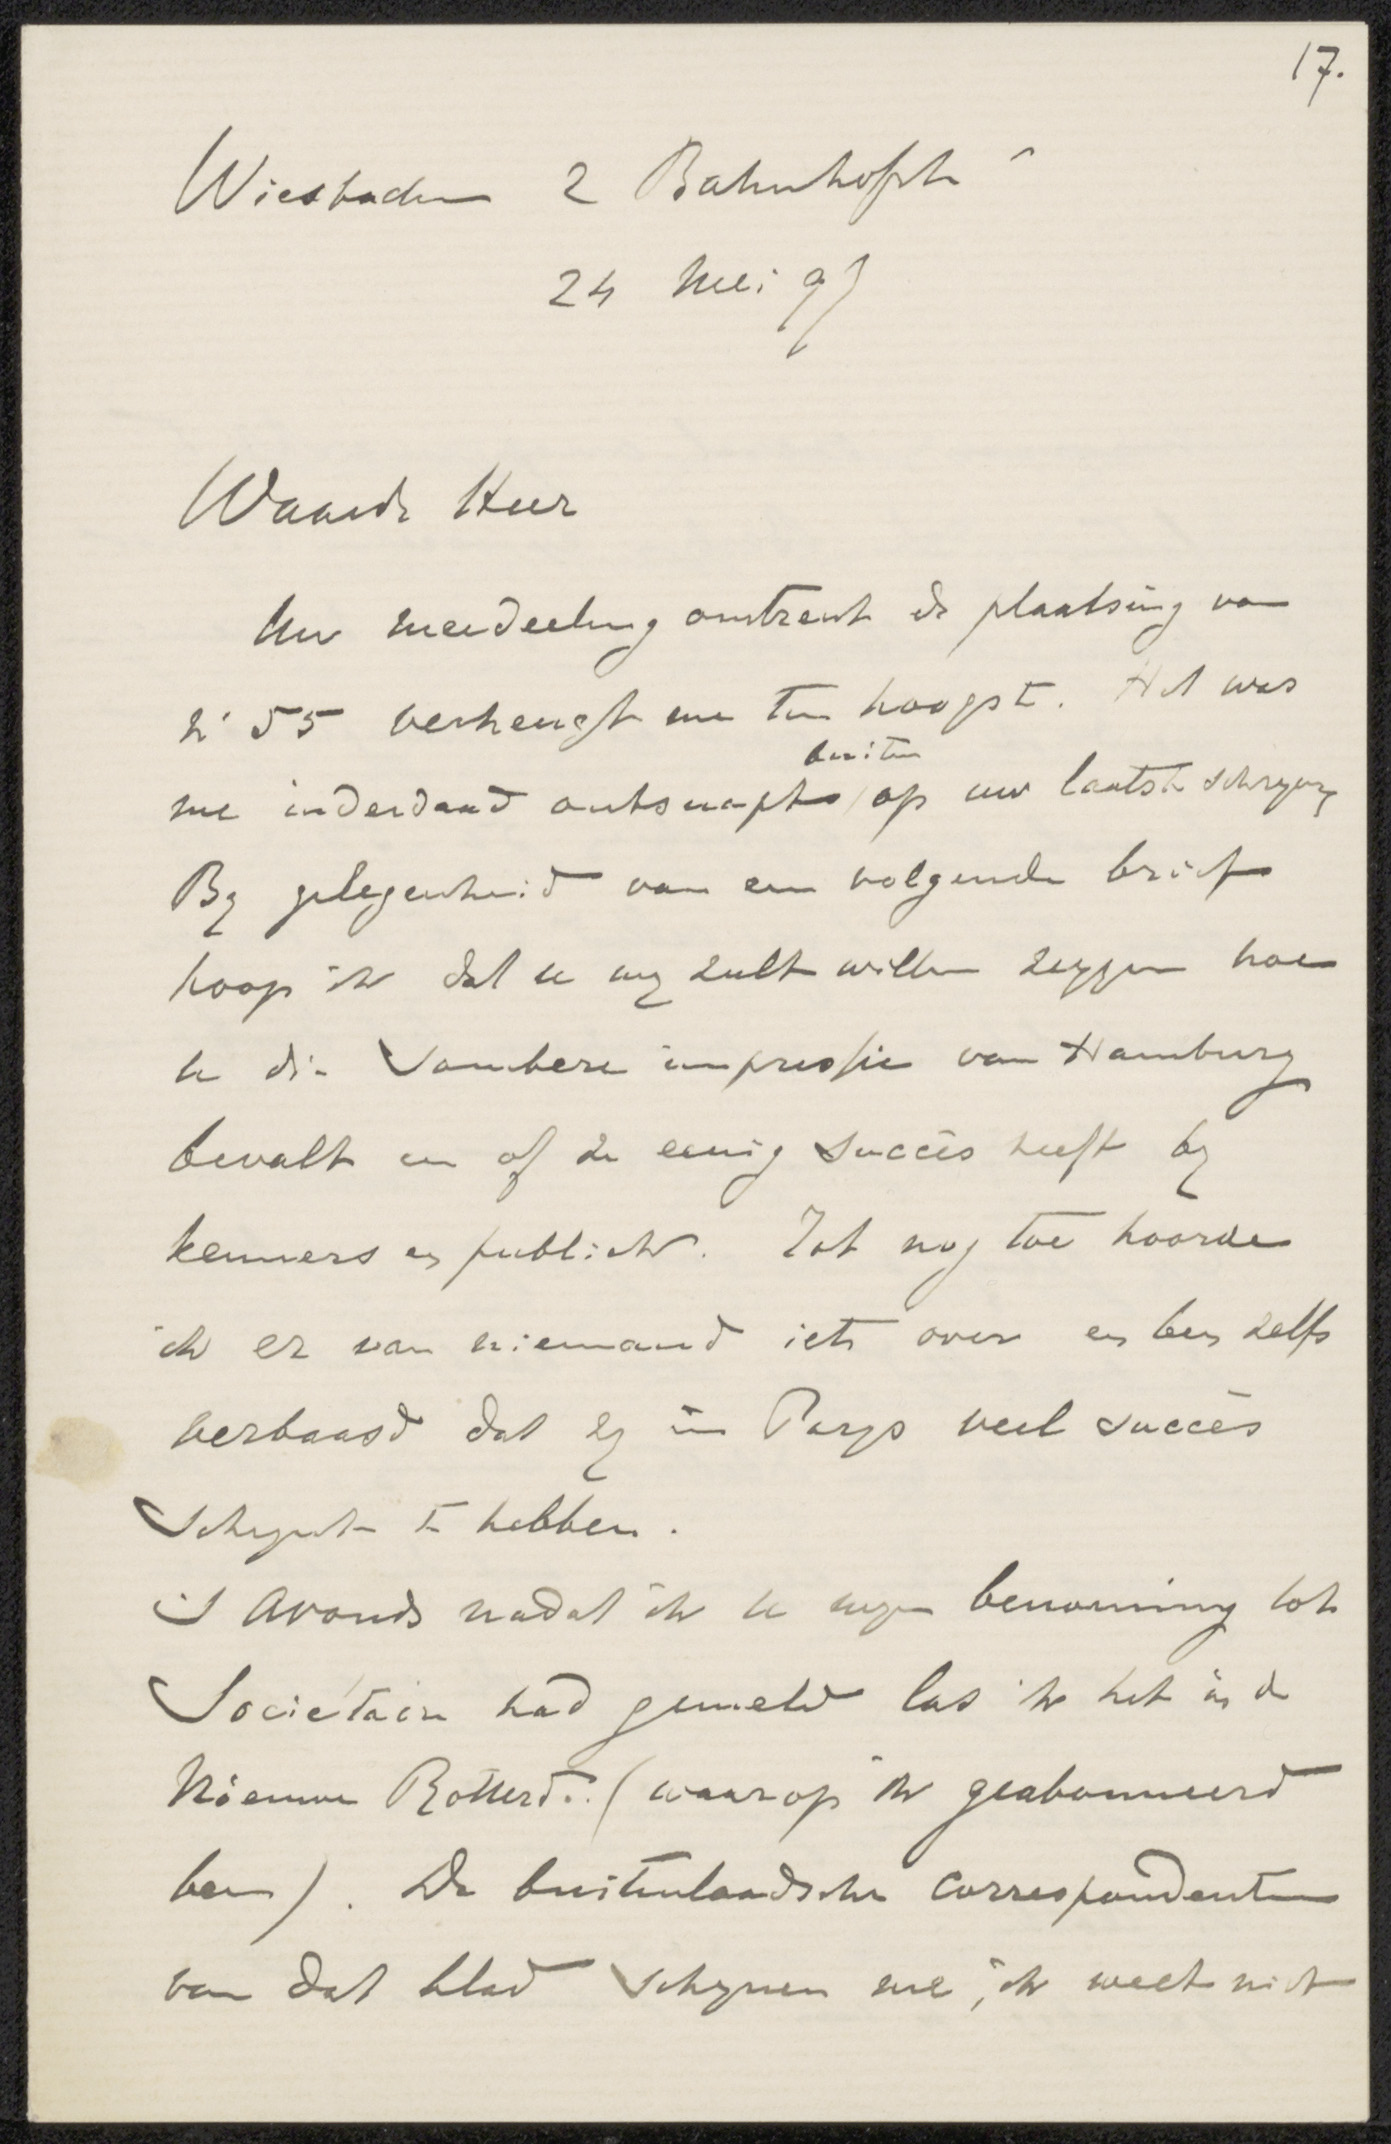 17.
Wiesbaden 2 Bahnhofstr
24 Mei 97
Waarde Heer
Uw meedeeling omtrent de plaatsing van
n° 55 verheugt me ten hoogste. Het was
buiten
me inderdaad ontsnapt op uw laatste schryven
By gelegenheid van een volgende brief
hoop ik dat u my zult willen zeggen hoe
u die sombere impressie van Hamburg
bevalt en of ze eenig succès heeft by
kenners en publiek. Tot nog toe hoorde
ik er van niemand iets over en ben zelfs
verbaasd dat zy in Parys veel succès
schynt te hebben.
's Avonds nadat ik u myn benoeming tot
Sociétaire had gemeld las ik het in de
Nieuwe Rotterd. (waarop ik geabonneerd
ben). De buitenlandsche correspondenten
van dat blad schynen me, ik weet niet